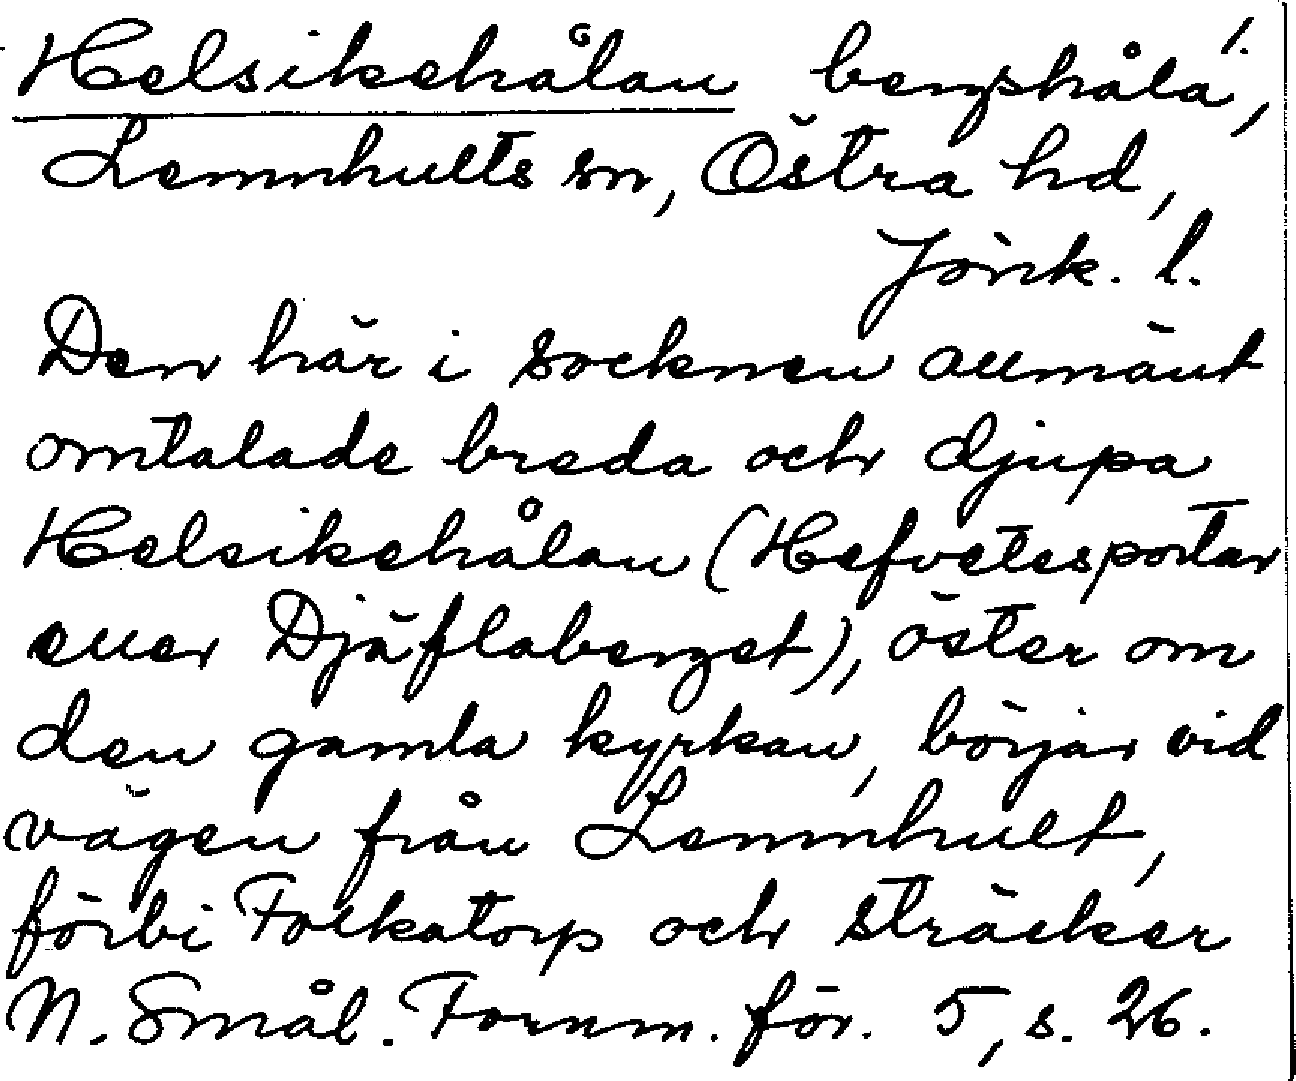 Helsikehålan bergshåla, 1.
Lemnhults sn, Östra hd,
Jönk. l.
Den här i socknen allmänt
omtalade breda och djupa
Helsikehålan (Hefvetesporten
eller Djäflaberget), öster om
den gamla kyrkan, börjar vid
vägen från Lemnhult,
förbi Folkatorp och sträcker
N. Smål. Fornm. för. 5, s. 26.